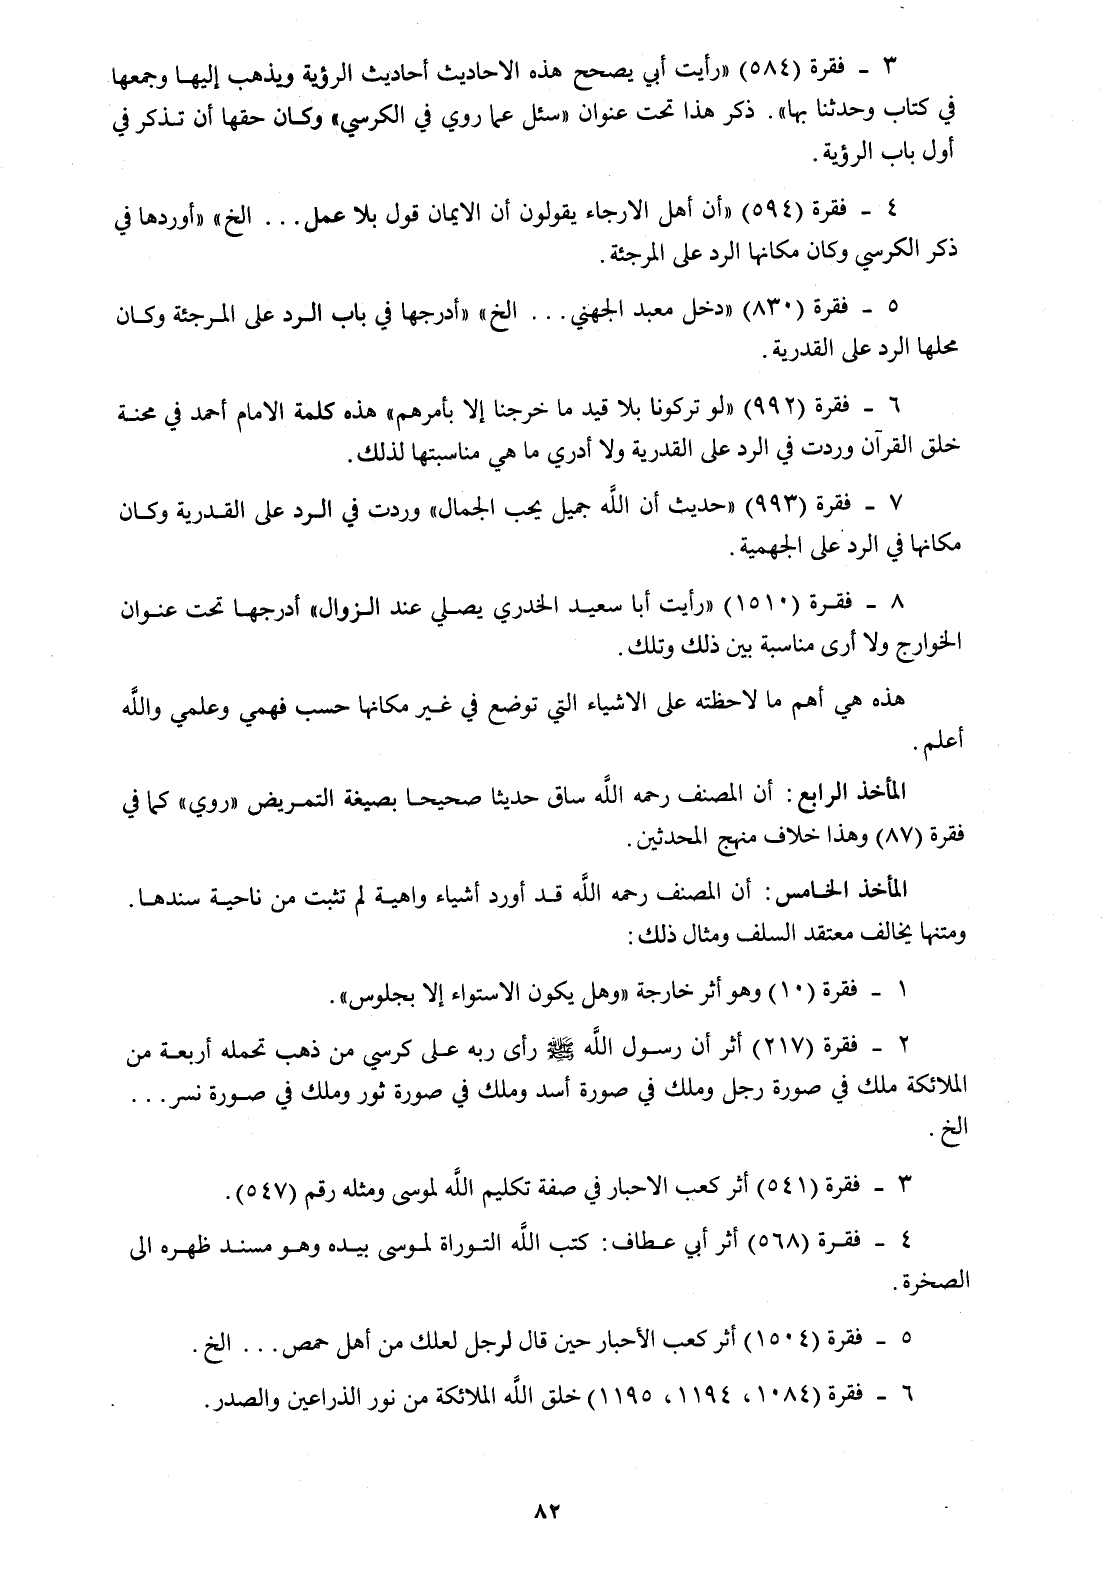 ٣ ـ فقرة (٥٨٤) «رأيت أبي يصحح هذه الاحاديث أحاديث الرؤية ويذهب إليها وجمعها
في كتاب وحدثنا بها». ذكر هذا تحت عنوان «سئل عما روي في الكرسي» وكان حقها أن تذكر في
أول باب الرؤية.
٤ ـ فقرة (٥٩٤) «أن أهل الارجاء يقولون أن الايمان قول بلا عمل... الخ» «أوردها في
ذكر الكرسي وكان مكانها الرد على المرجئة.
٥ ـ فقرة (٨٣٠) «دخل معبد الجهني... الخ» «أدرجها في باب الرد على المرجئة وكان
محلها الرد على القدرية.
٦ ـ فقرة (٩٩٢) «لو تركونا بلا قيد ما خرجنا إلا بأمرهم» هذه كلمة الامام أحمد في محنة
خلق القرآن وردت في الرد على القدرية ولا أدري ما هي مناسبتها لذلك.
٧ ـ فقرة (٩٩٣) «حديث أن اللَّه جميل يحب الجمال» وردت في الرد على القدرية وكان
مكانها في الرد على الجهمية.
٨ ـ فقرة (١٥١٠) «رأيت أبا سعيد الخدري يصلي عند الزوال» أدرجها تحت عنوان
الخوارج ولا أرى مناسبة بين ذلك وتلك.
هذه هي أهم ما لاحظته على الاشياء التي توضع في غير مكانها حسب فهمي وعلمي واللَّه
أعلم.
المأخذ الرابع: أن المصنف رحمه اللَّه ساق حديثا صحيحا بصيغة التمريض «روي» كما في
فقرة (٨٧) وهذا خلاف منهج المحدثين.
المأخذ الخامس: أن المصنف رحمه اللَّه قد أورد أشياء واهية لم تثبت من ناحية سندها.
ومتنها يخالف معتقد السلف ومثال ذلك:
١ ـ فقرة (١٠) وهو أثر خارجة «وهل يكون الاستواء إلا بجلوس».
٢ ـ فقرة (٢١٧) أثر أن رسول اللَّه ﷺ رأى ربه على كرسي من ذهب تحمله أربعة من
الملائكة ملك في صورة رجل وملك في صورة أسد وملك في صورة ثور وملك في صورة نسر...
الخ.
٣ ـ فقرة (٥٤١) أثر كعب الاحبار في صفة تكليم اللَّه لموسى ومثله رقم (٥٤٧).
٤ ـ فقرة (٥٦٨) أثر أبي عطاف: كتب اللَّه التوراة لموسى بيده وهو مسند ظهره الى
الصخرة.
٥ ـ فقرة (١٥٠٤) أثر كعب الأحبار حين قال لرجل لعلك من أهل حمص... الخ.
٦ ـ فقرة (١٠٨٤، ١١٩٤، ١١٩٥) خلق اللَّه الملائكة من نور الذراعين والصدر.
٨٢